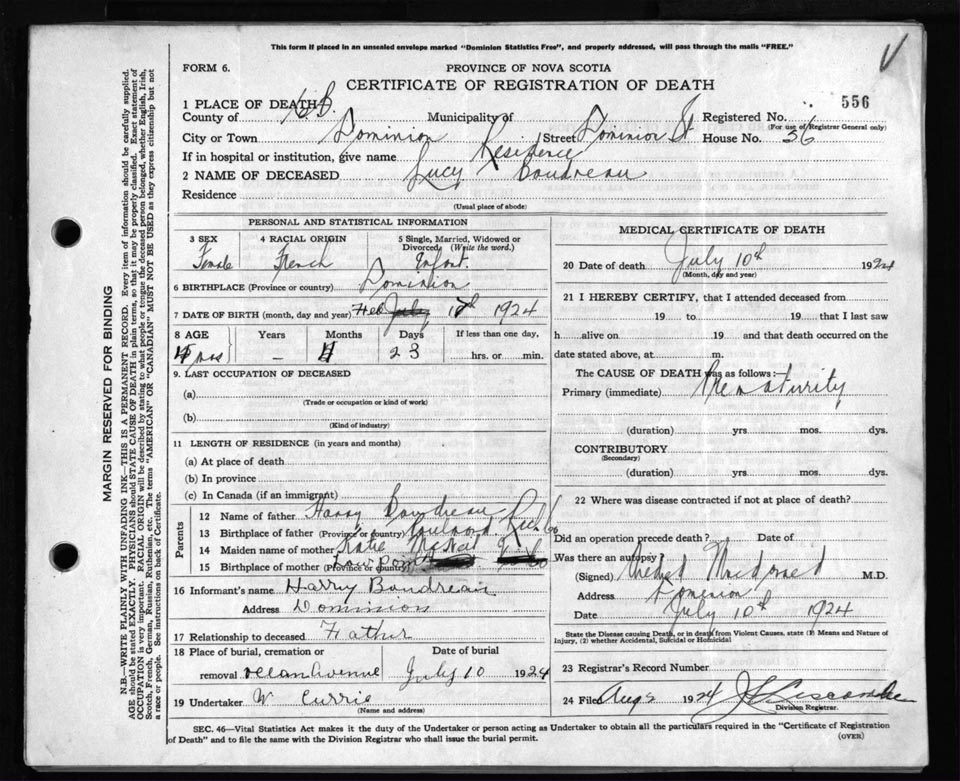 This form if placed in an unsealed envelope marked "Dominion Statistics Free", and properly addressed, will pass through the mails "FREE."
FORM 6.
PROVINCE OF NOVA SCOTIA
CERTIFICATE OF REGISTRATION OF DEATH
556
1 PLACE OF DEATH
County of C.B. Municipality of Registered No.
(For use of Registrar General only)
City or Town Dominion Street Dominion St House No. 36
If in hospital or institution, give name Residence
2 NAME OF DECEASED Lucy Boudreau
Residence
(Usual place of abode)
PERSONAL AND STATISTICAL INFORMATION
3 SEX 4 RACIAL ORIGIN 5 Single, Married, Widowed or Divorced (Write the word.)
Female French Infant.
6 BIRTHPLACE (Province or country) Dominion
7 DATE OF BIRTH (month, day and year) Feb July 17th 1924
8 AGE Years Months Days If less than one day,
mos – 4 23 hrs. or min.
9. LAST OCCUPATION OF DECEASED
(a)
(Trade or occupation or kind of work)
(b)
(Kind of industry)
11 LENGTH OF RESIDENCE (in years and months)
(a) At place of death
(b) In province
(c) In Canada (if an immigrant)
Parents
12 Name of father Harry Boudreau
13 Birthplace of father (Province or country)
14 Maiden name of mother Katie McNeil
15 Birthplace of mother (Province or country)
16 Informant's name Harry Boudreau
Address Dominion
17 Relationship to deceased Father
18 Place of burial, cremation or Date of burial
removal Avenue July 10 1924
19 Undertaker W Currie
(Name and address)
MEDICAL CERTIFICATE OF DEATH
20 Date of death July 10th 1924
(Month, day and year)
21 I HEREBY CERTIFY, that I attended deceased from
19 to 19 that I last saw
h alive on 19 and that death occurred on the
date stated above, at m.
The CAUSE OF DEATH was as follows:—
Primary (immediate) Prematurity
(duration) yrs. mos. dys.
CONTRIBUTORY
(Secondary)
(duration) yrs. mos. dys.
22 Where was disease contracted if not at place of death?
Did an operation precede death? Date of
Was there an autopsy?
(Signed) M.D.
Address Dominion
Date July 10th 1924
State the Disease causing Death, or in death from Violent Causes, state (1) Means and Nature of Injury, (2) whether Accidental, Suicidal or Homicidal
23 Registrar's Record Number
24 Filed Aug 2 1924
Division Registrar.
SEC. 46—Vital Statistics Act makes it the duty of the Undertaker or person acting as Undertaker to obtain all the particulars required in the "Certificate of Registration
of Death" and to file the same with the Division Registrar who shall issue the burial permit.
(OVER)
MARGIN RESERVED FOR BINDING
N.B.—WRITE PLAINLY WITH UNFADING INK—THIS IS A PERMANENT RECORD. Every item of information should be carefully supplied.
AGE should be stated EXACTLY. PHYSICIANS should STATE CAUSE OF DEATH in plain terms, so that it may be properly classified. Exact statement of
OCCUPATION is very important. RACIAL ORIGIN will be described by stating to what people or tongue the deceased person belonged, whether English, Irish,
Scotch, French, German, Russian, Ruthenian, etc. The terms "AMERICAN" OR "CANADIAN" MUST NOT BE USED as they express citizenship but not
a race or people. See instructions on back of Certificate.